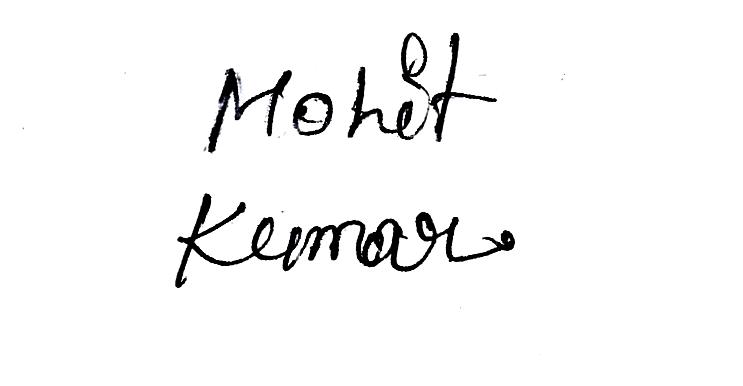 Mohit
Kumar